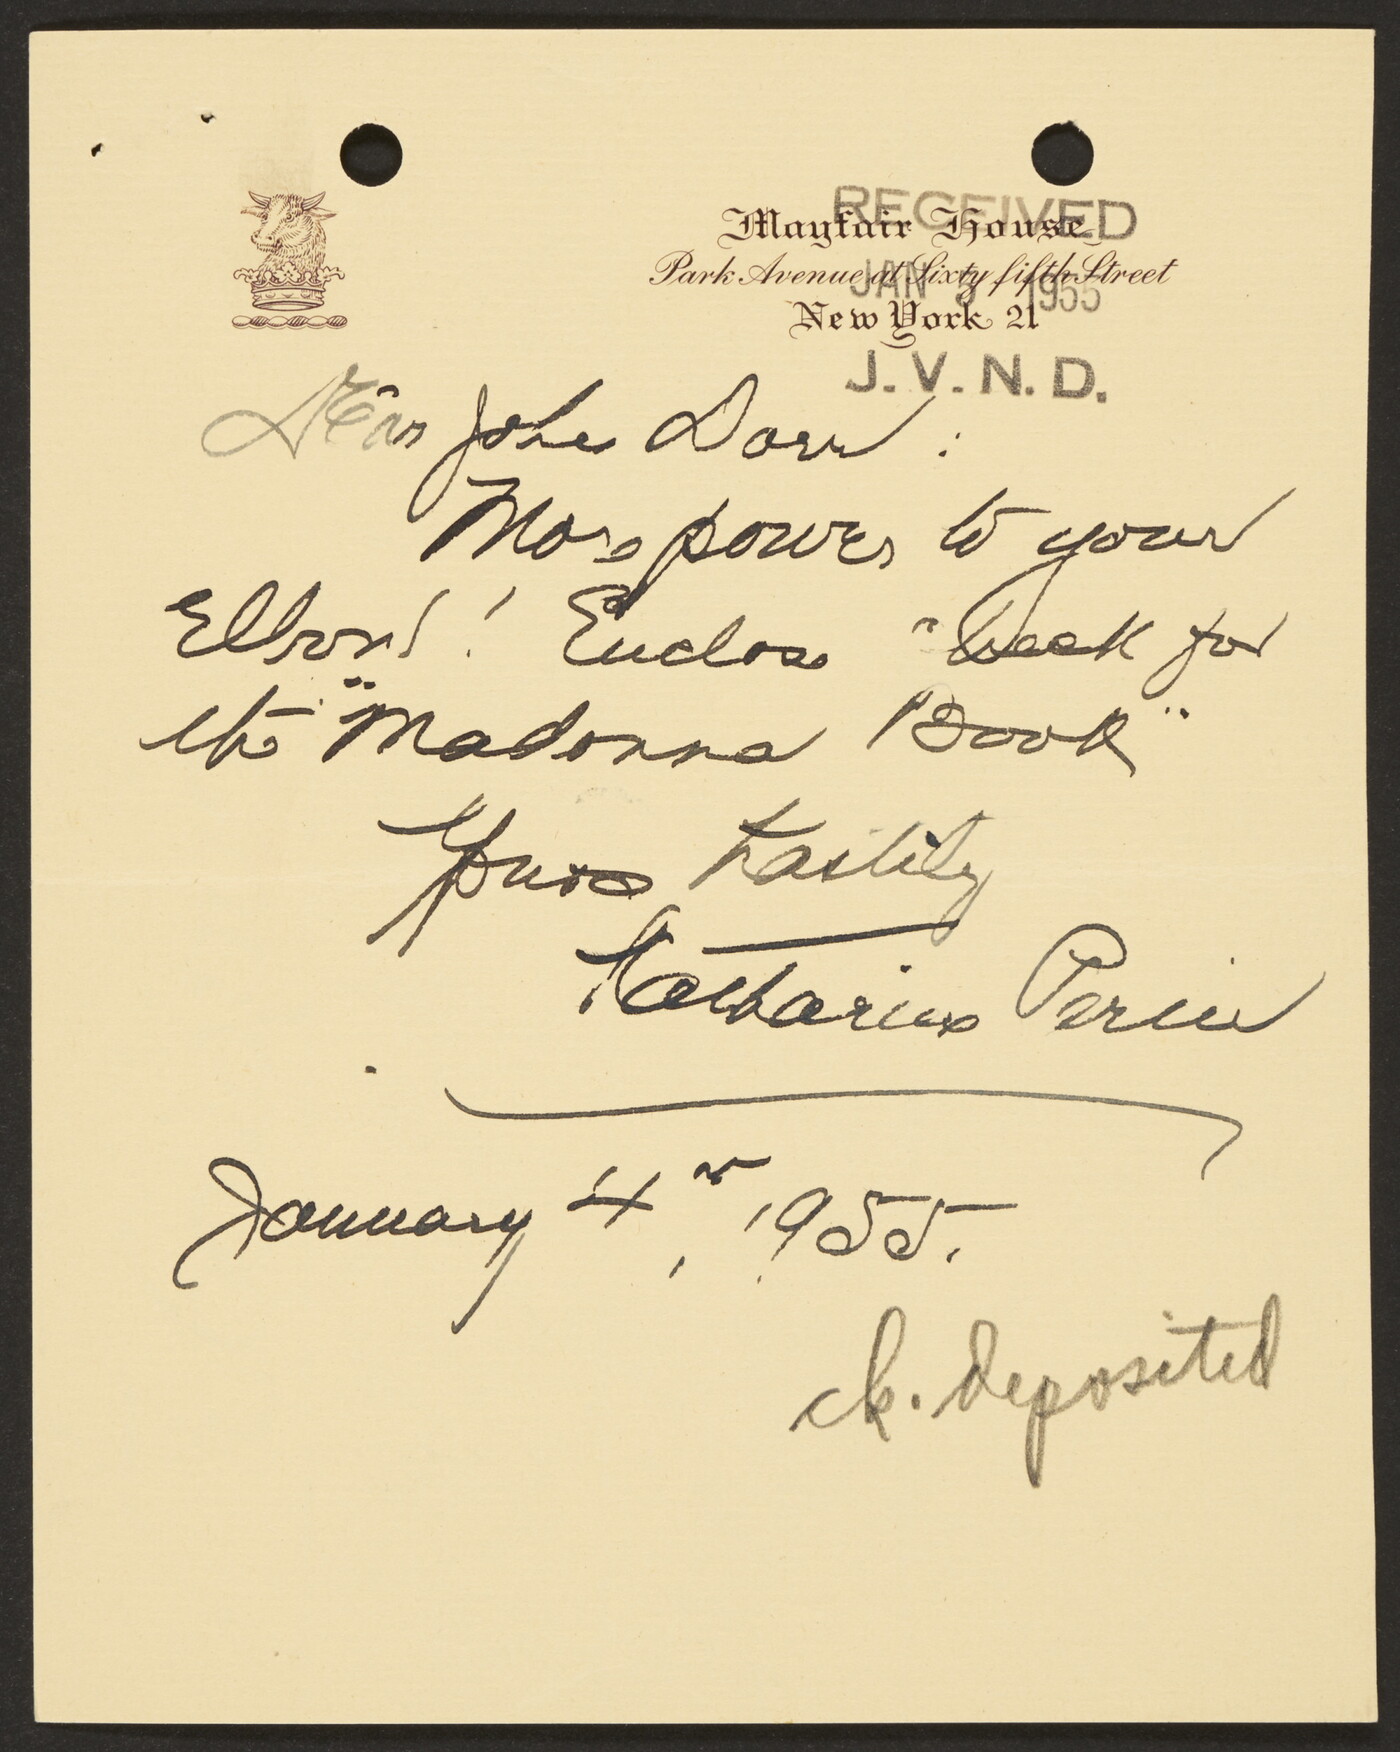 RECEIVED
Mayfair House
Park Avenue at Sixty fifth Street
JAN 5 1955
New York 21
J. V. N. D.
Dear John Dorr:
More power to your
Elbow! Enclose "check for
the "Madonna Book"
Yours hastily
Katharine Perin
January 4th, 1955.
ck. deposited